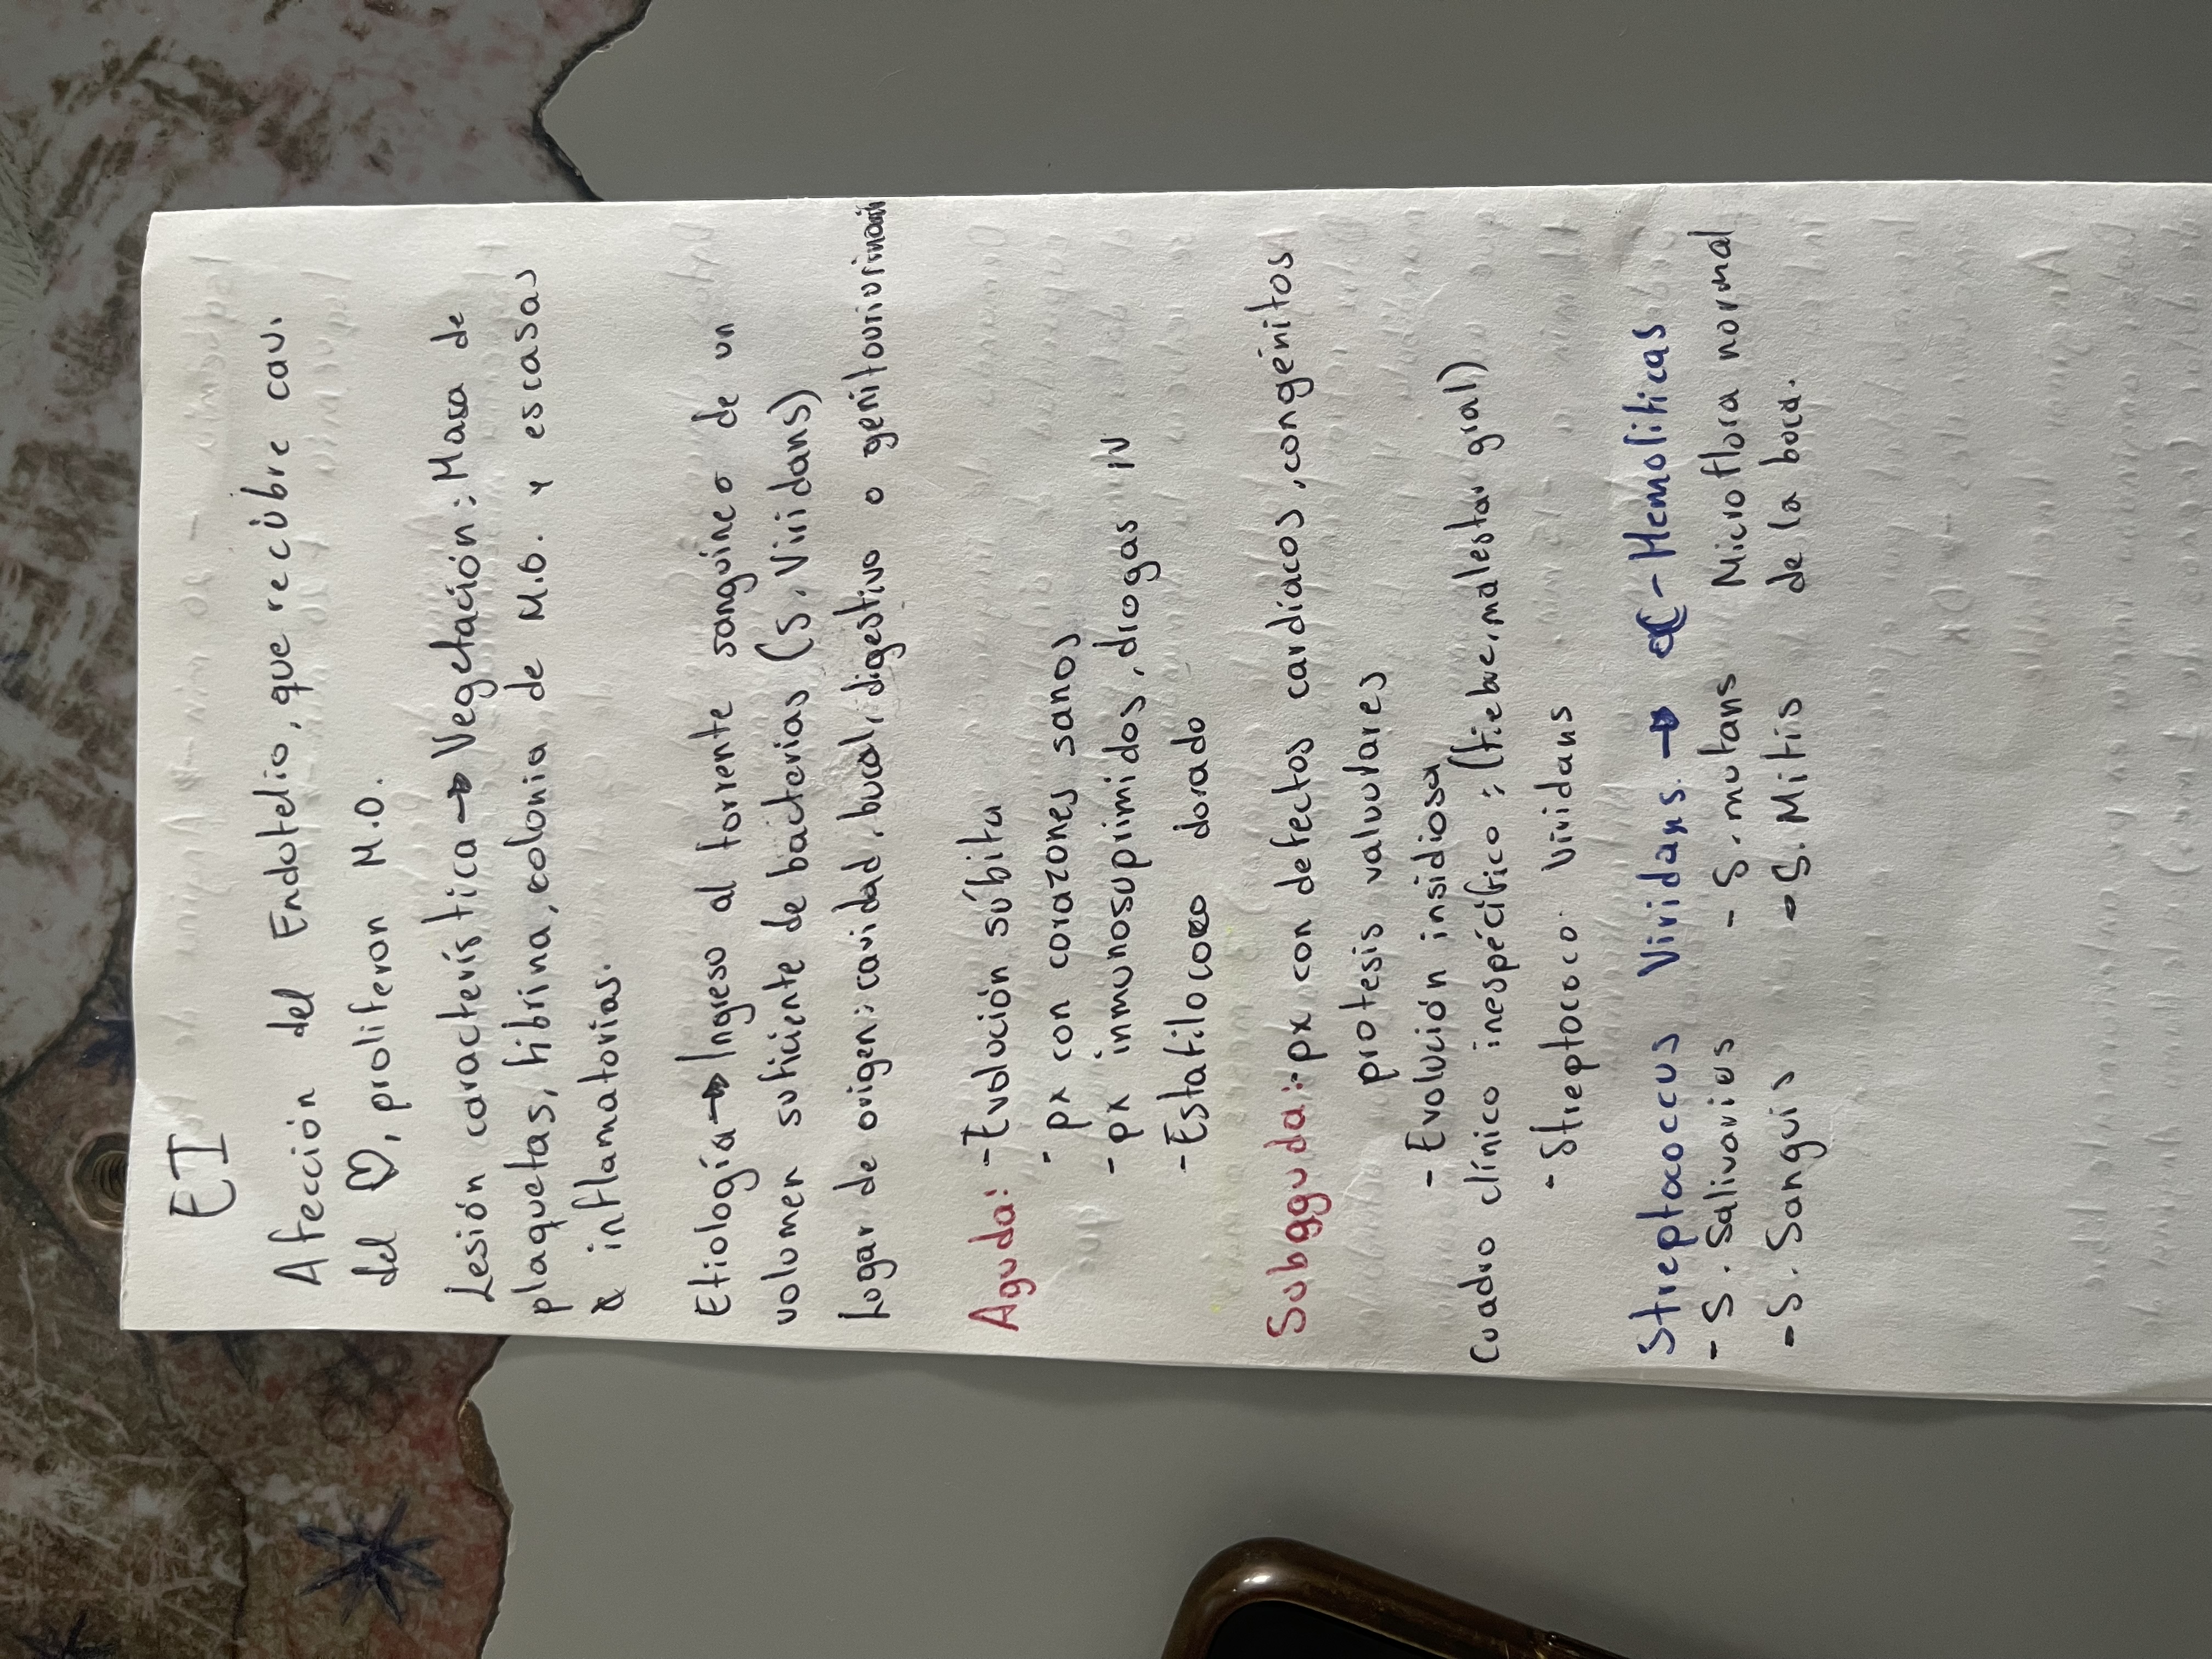 EI
Afección del Endotelio, que recúbre cav.
del ♡, proliferan M.O.
Lesión característica → Vegetación: Masa de
plaquetas, fibrina, colonia de M.O. y escasas
inflamatorias.
Etiología → Ingreso al torrente sanguíneo de un
volumen suficiente de bacterias (S. Viridans)
Lugar de origen: cavidad, bucal, digestivo o
Aguda: - Evolución súbita
- px con corazones sanos
- px inmunosuprimidos, drogas IV
- Estafilococo dorado
Subaguda: - px con defectos cardíacos, congénitos
protesis valvulares
- Evolución insidiosa
Cuadro clínico inespécifico: (fiebre, malestar gral)
- Streptococo Viridans
Streptococcus Viridans. → α - Hemoliticas
- S. Salivarius - S. mutans Microflora normal
- S. Sanguis - S. Mitis de la boca.